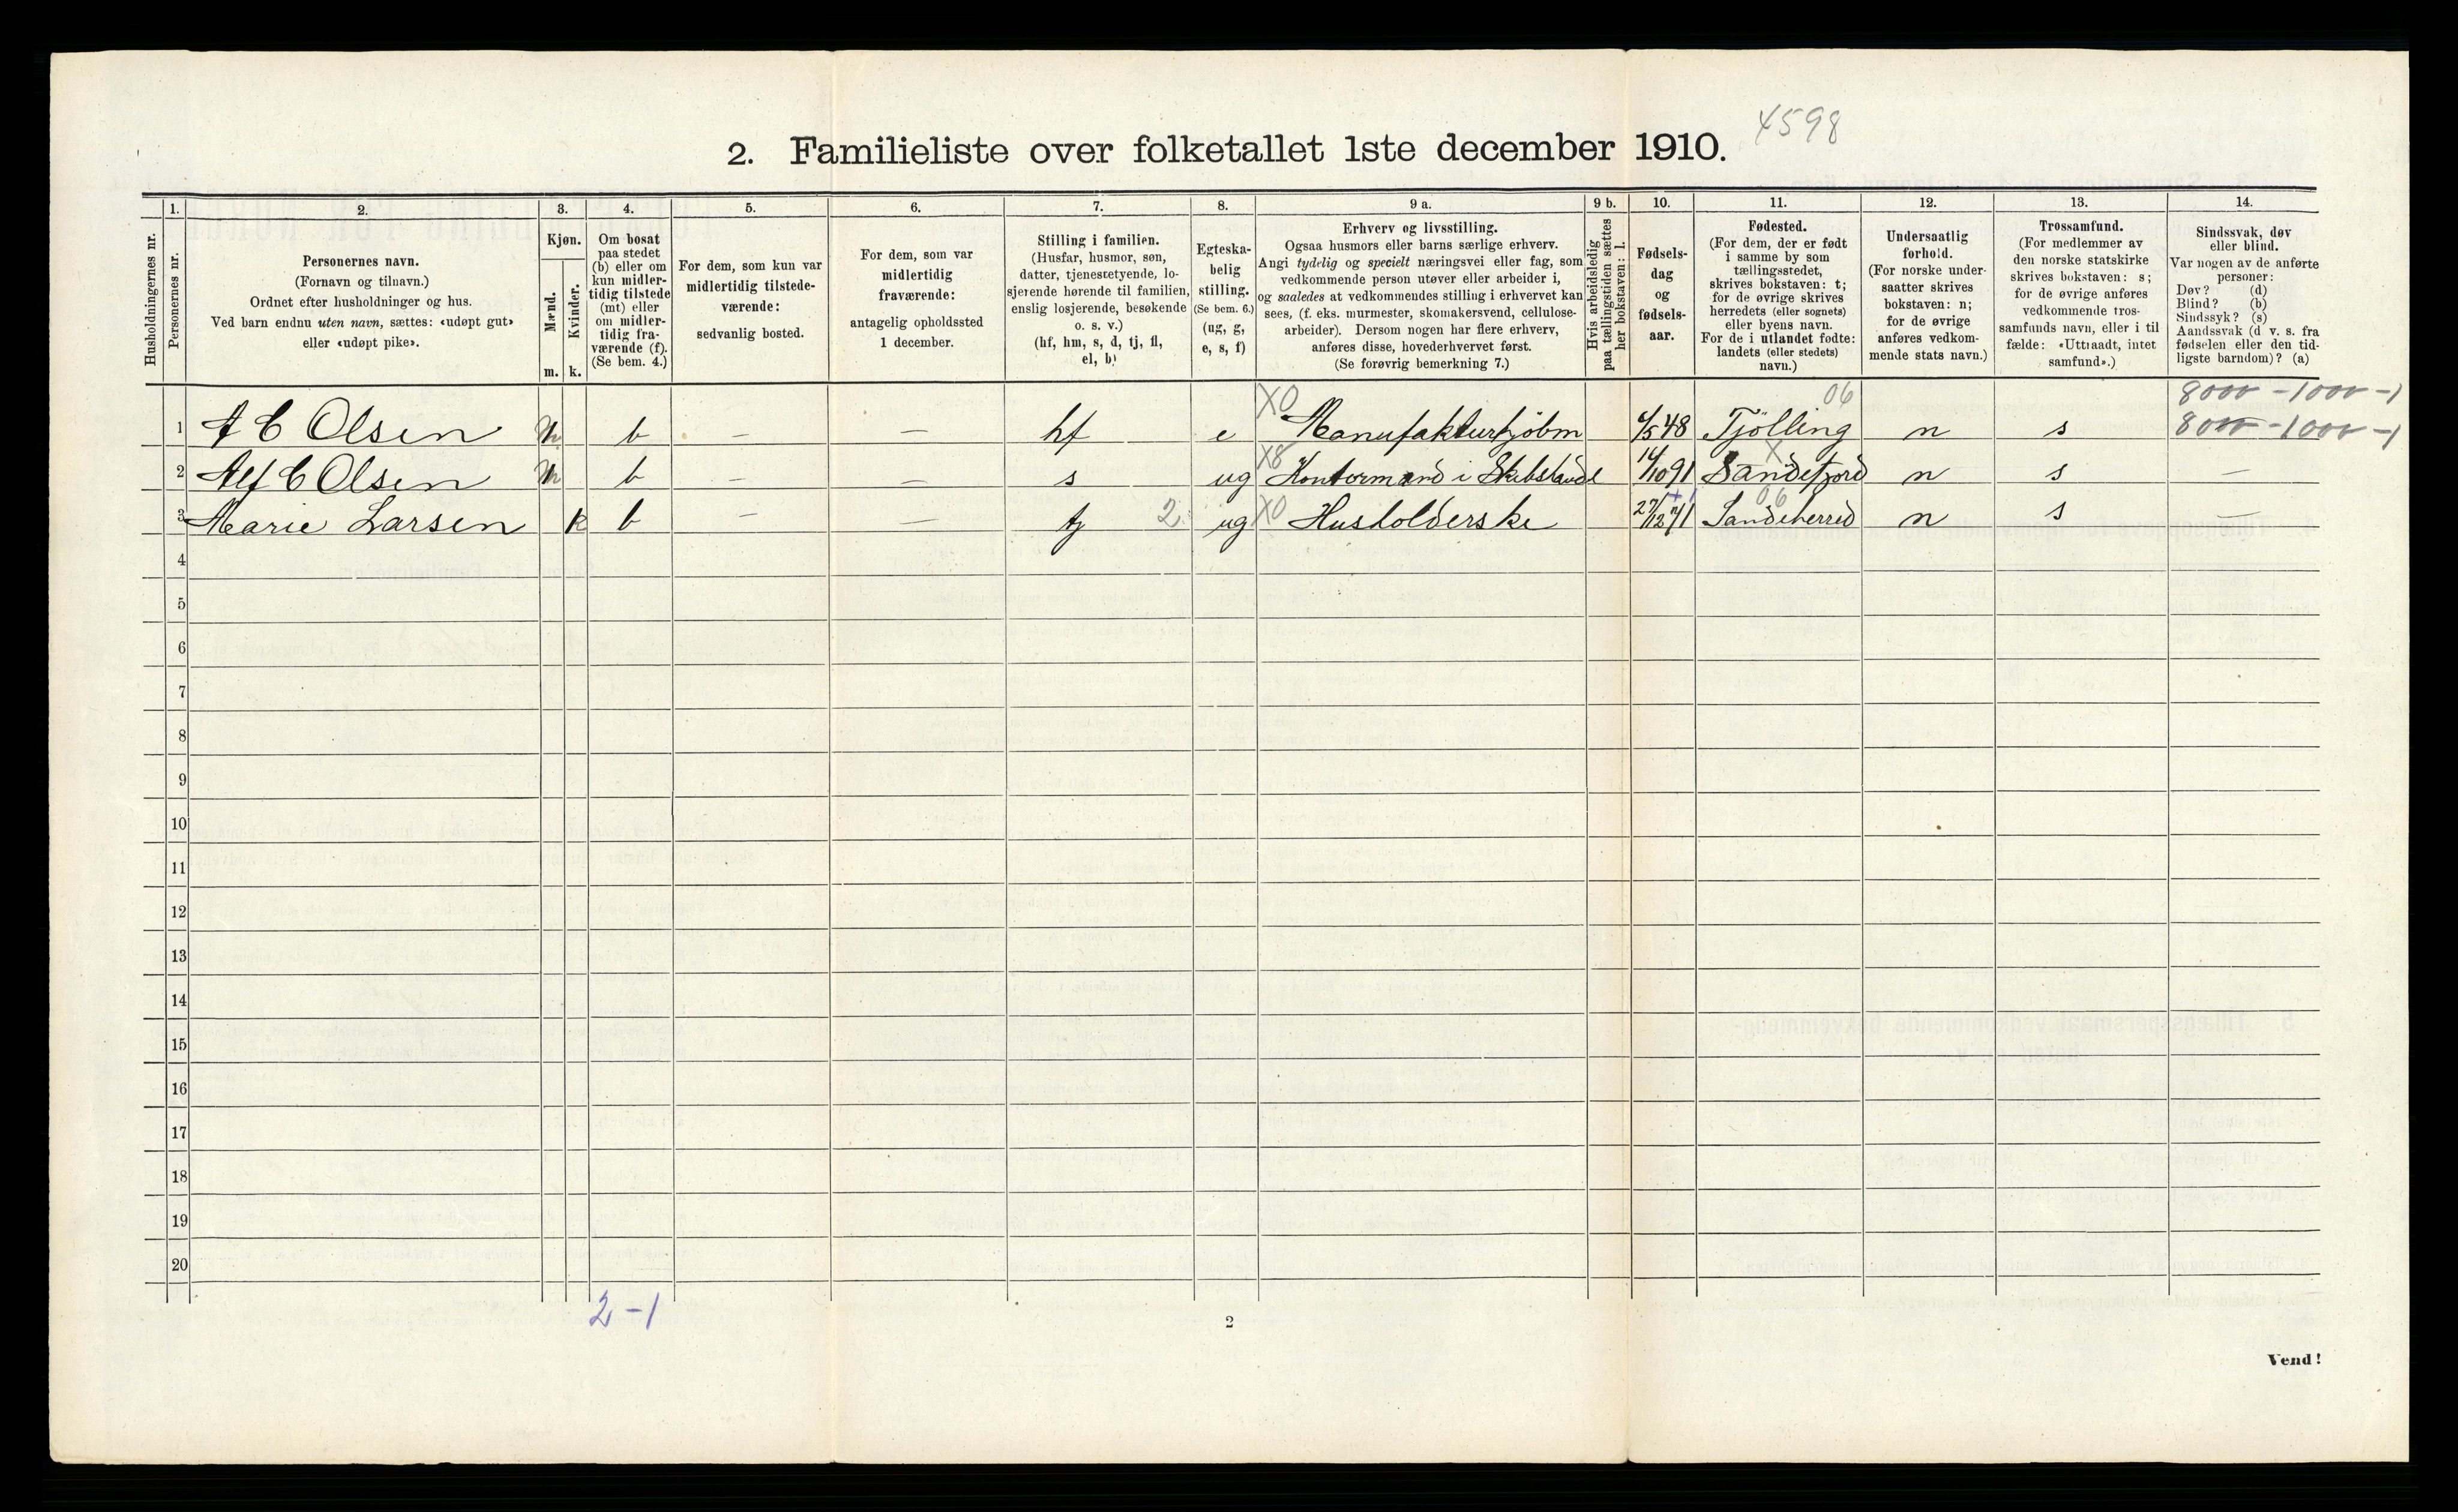 4598
2. Familieliste over folketallet 1ste december 1910.
Husholdningernes nr.
1.
Personernes nr.
2.
Personernes navn.
(Fornavn og tilnavn.)
Ordnet efter husholdninger og hus.
Ved barn endnu uten navn, sættes: «udøpt gut»
eller «udøpt pike».
3.
Kjøn.
Mænd.
Kvinder.
m.
k.
4.
Om bosat
paa stedet
(b) eller om
kun midler-
tidig tilstede
(mt) eller
om midler-
tidig fra-
værende (f).
(Se bem. 4.)
5.
For dem, som kun var
midlertidig tilstede-
værende:
sedvanlig bosted.
6.
For dem, som var
midlertidig
fraværende:
antagelig opholdssted
1 december.
7.
Stilling i familien.
(Husfar, husmor, søn,
datter, tjenestetyende, lo-
sjerende hørende til familien,
enslig losjerende, besøkende
o. s. v.)
(hf, hm, s, d, tj, fl,
el, b)
8.
Egteska-
belig
stilling.
(Se bem. 6.)
(ug, g,
e, s, f)
9 a.
Erhverv og livsstilling.
Ogsaa husmors eller barns særlige erhverv.
Angi tydelig og specielt næringsvei eller fag, som
vedkommende person utøver eller arbeider i,
og saaledes at vedkommendes stilling i erhvervet kan
sees, (f. eks. murmester, skomakersvend, cellulose-
arbeider). Dersom nogen har flere erhverv,
anføres disse, hovederhvervet først.
(Se forøvrig bemerkning 7.)
9 b.
Hvis arbeidsledig
paa tællingstiden sættes
her bokstaven: l.
10.
Fødsels-
dag
og
fødsels-
aar.
11.
Fødested.
(For dem, der er født
i samme by som
tællingsstedet,
skrives bokstaven: t;
for de øvrige skrives
herredets (eller sognets)
eller byens navn.
For de i utlandet fødte:
landets (eller stedets)
navn.)
12.
Undersaatlig
forhold.
(For norske under-
saatter skrives
bokstaven: n;
for de øvrige
anføres vedkom-
mende stats navn.)
13.
Trossamfund.
(For medlemmer av
den norske statskirke
skrives bokstaven: s;
for de øvrige anføres
vedkommende tros-
samfunds navn, eller i til
fælde: «Uttraadt, intet
samfund».)
14.
Sindssvak, døv
eller blind.
Var nogen av de anførte
personer:
Døv? (d)
Blind? (b)
Sindssyk? (s)
Aandssvak (d v. s. fra
fødselen eller den tid-
ligste barndom)? (a)
X0 06 8000 - 1000 - 1
1 A C Olsen m b — — hf e Manufakturhjøbm 6/5 48 Tjölling n s 8000 - 1000 - 1
X8 X
2 Alf C Olsen m b — — s ug Kontormand i Skibshandl 14/10 91 Sandefjord n s —
06
3 Marie Larsen k b — — tj 2 ug X0 Husholderske 27/12 71 Sandeherred n s —
4
5
6
7
8
9
10
11
12
13
14
15
16
17
18
19
20
2 - 1
2
Vend!